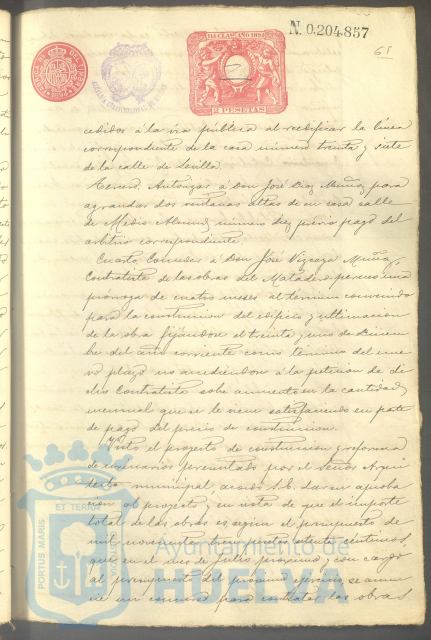 N. 0.204.857
61
11ª CLASE AÑO 1894
2 PESETAS
cedidos á la via pública al rectificar la linea
correspondiente de la casa número treinta y siete
de la calle de Sevilla.
Tercero. Autorizar á Don José Diaz Muñoz para
agrandar dos ventanas altas de su casa calle
de Medio Almud, número diez previo pago del
arbitrio correspondiente.
Cuarto. Conceder á Don José Vizcaya Muñoz,
Contratista de las obras del Matadero permiso una
próroga de cuatro meses al término convenido
para la construccion del edificio y ultimacion
de la obra fijándose el treinta y uno de Diciem
bre del año corriente como término del nue
vo plazo no accediendose á la peticion de di
cho Contratista sobre aumento en la cantidad
mensual que se le viene satisfaciendo en parte
de pago del precio de construccion.
Visto el proyecto de construccion y reforma
de urinarios presentado por el Señor Arqui
tecto municipal, acordó S.E. dar su aproba
cion al proyecto y en vista de que el importe
total de las obras es segun el presupuesto de
mil novecientas tres pesetas ochenta centimos,
que en el mes de Julio próximo y con cargo
al presupuesto del próximo ejercicio, se anun
cie un concurso para contratar las obras
PORTUS MARIS
ET TERRAE
Ayuntamiento de
HUELVA